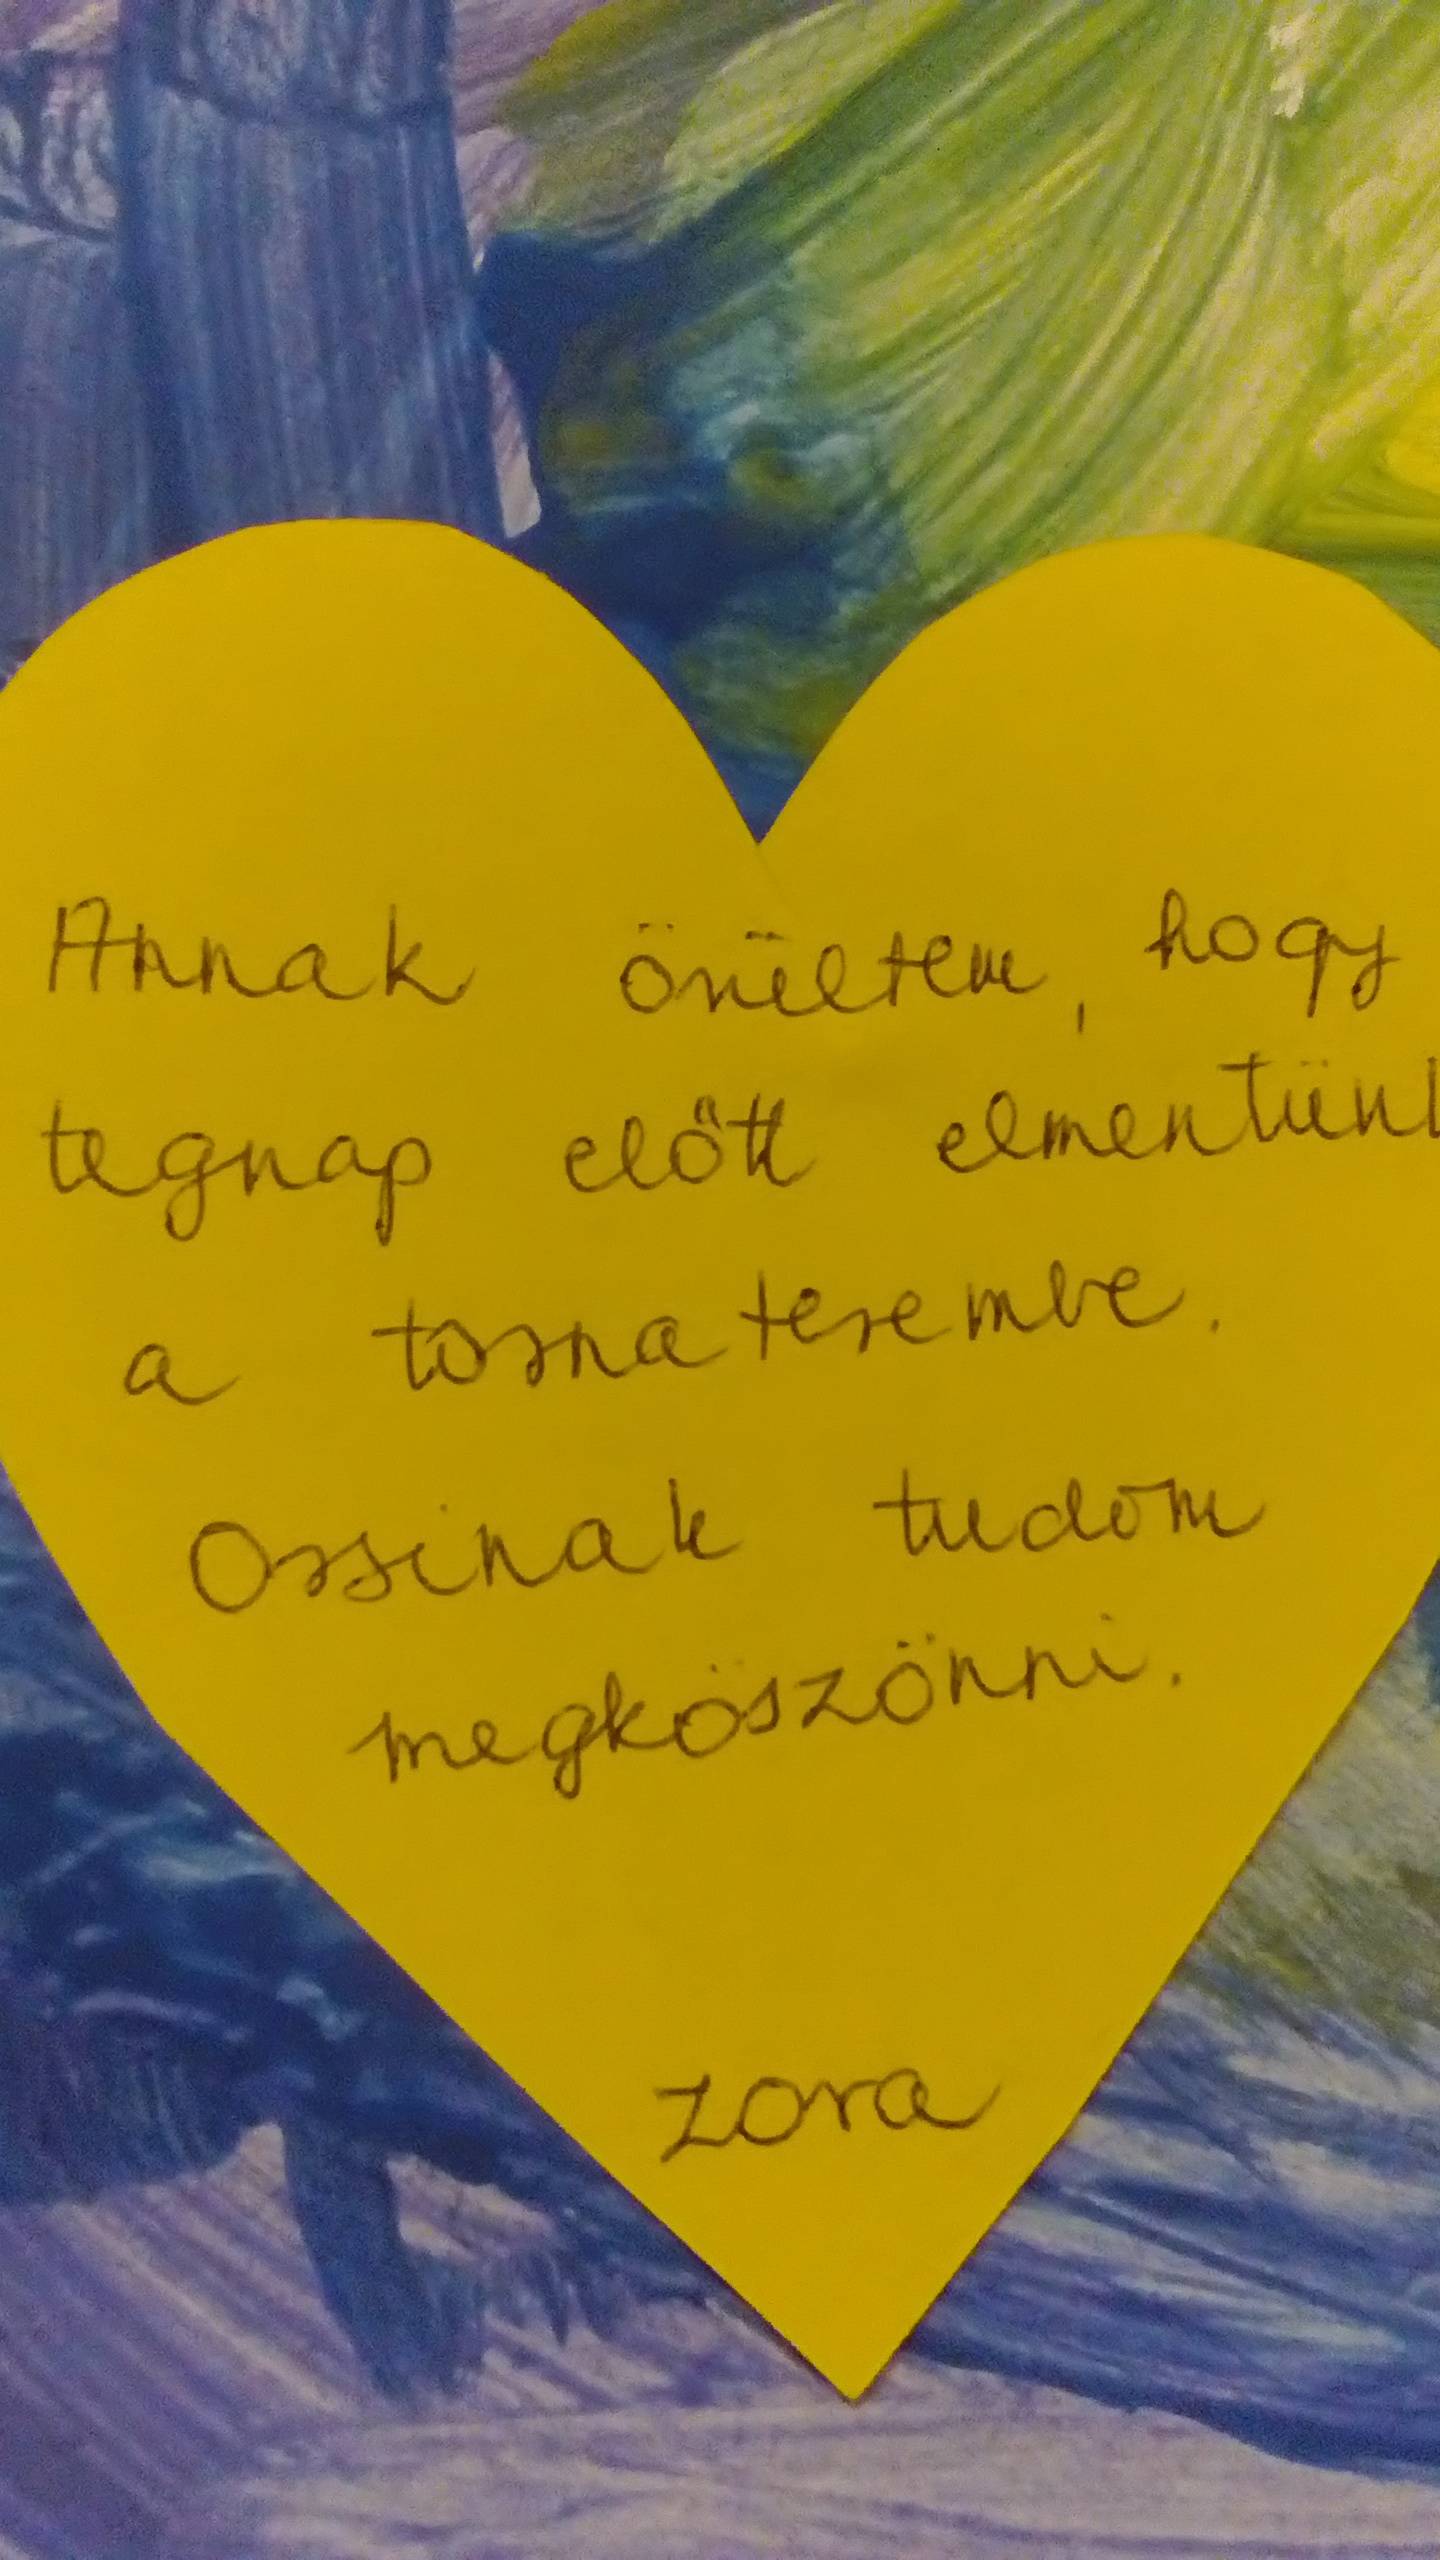 Annak örültem, hogy
tegnap előtt elmentünk
a tornaterembe.
Orsinak tudom
megköszönni.
Zora